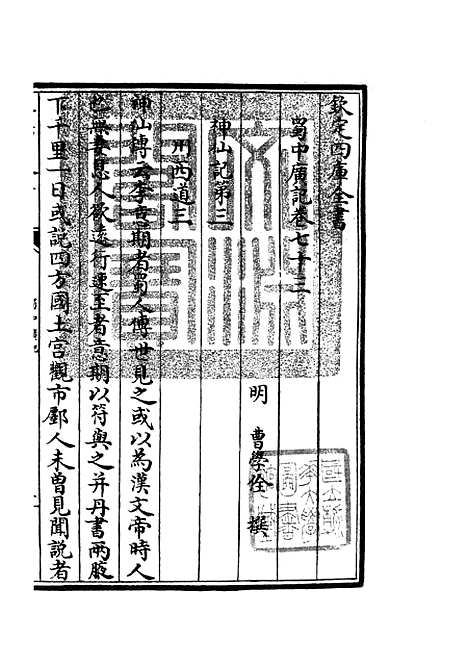 欽定四庫全書
蜀中廣記卷七十三
明 曹學佺 撰
神仙記第三
川西道三
神仙傳云李意期者蜀人傳世見之或以為漢文帝時人
也無妻息人欲遠行速至者意期以符與之并丹書兩腋
下千里一日或說四方國土宮觀市鄽人未曾見聞說者